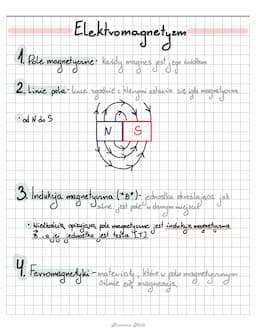 Elektromagnetyzm
1. Pole magnetyczne - każdy magnes jest jego źródłem
2. Linie pola - linie zgodnie z którymi ustawia się igła magnetyczna
• od N do S
N S
3. Indukcja magnetyczna ("B") - jednostka określająca jak
silne jest pole w danym miejscu
• Wielkością opisującą pole magnetyczne jest indukcja magnetyczna
B, a jej jednostką jest tesla [T]
4. Ferromagnetyki - materiały, które w polu magnetycznym
silnie się magnesują